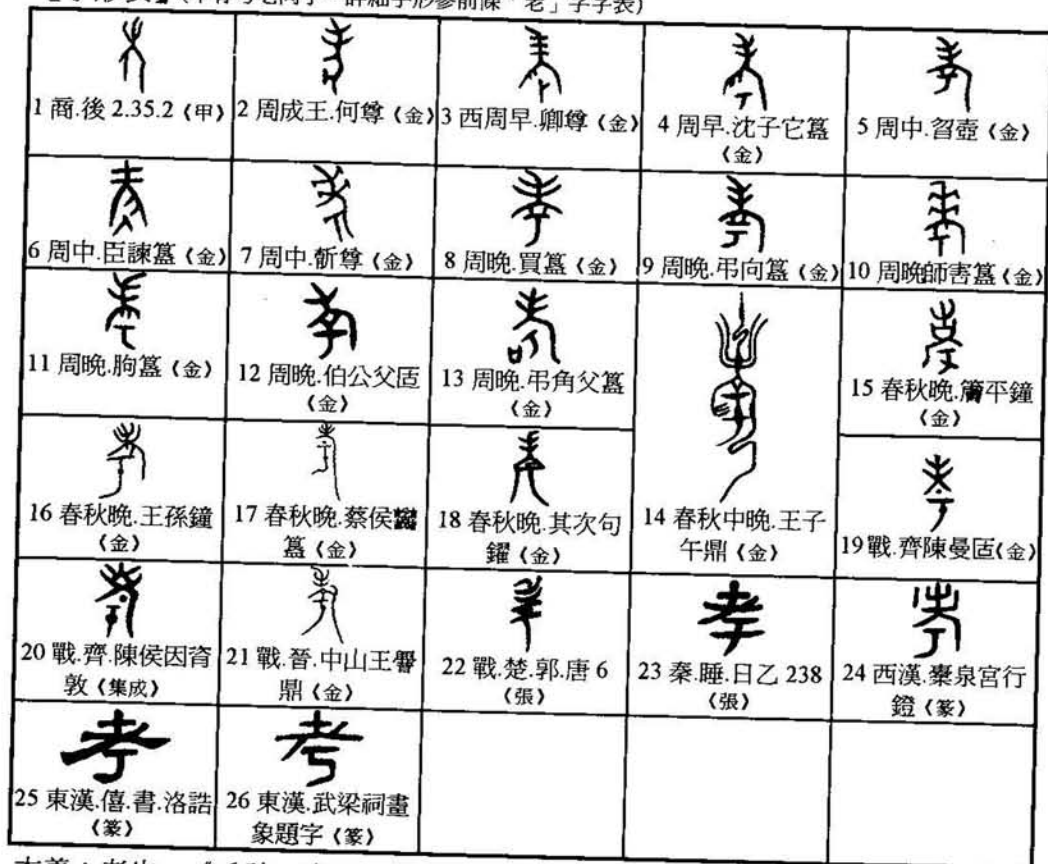 1 商.後 2.35.2《甲》
2 周成王.何尊《金》
3 西周早.卿尊《金》
4 周早.沈子它簋
《金》
5 周中.曶壺《金》
6 周中.臣諫簋《金》
7 周中.斱尊《金》
8 周晚.買簋《金》
9 周晚.弔向簋《金》
10 周晚師害簋《金》
11 周晚.朐簋《金》
12 周晚.伯公父匜
《金》
13 周晚.弔角父簋
《金》
14 春秋中晚.王子
午鼎《金》
15 春秋晚.平鐘
《金》
16 春秋晚.王孫鐘
《金》
17 春秋晚.蔡侯
簋《金》
18 春秋晚.其次句
鑃《金》
19 戰.齊陳曼匜《金》
20 戰.齊.陳侯因
敦《集成》
21 戰.晉.中山王
鼎《金》
22 戰.楚.郭.唐 6
《張》
23 秦.睡.日乙 238
《張》
24 西漢.橐泉宮行
鐙《篆》
25 東漢.僖.書.洛誥
《篆》
26 東漢.武梁祠畫
象題字《篆》